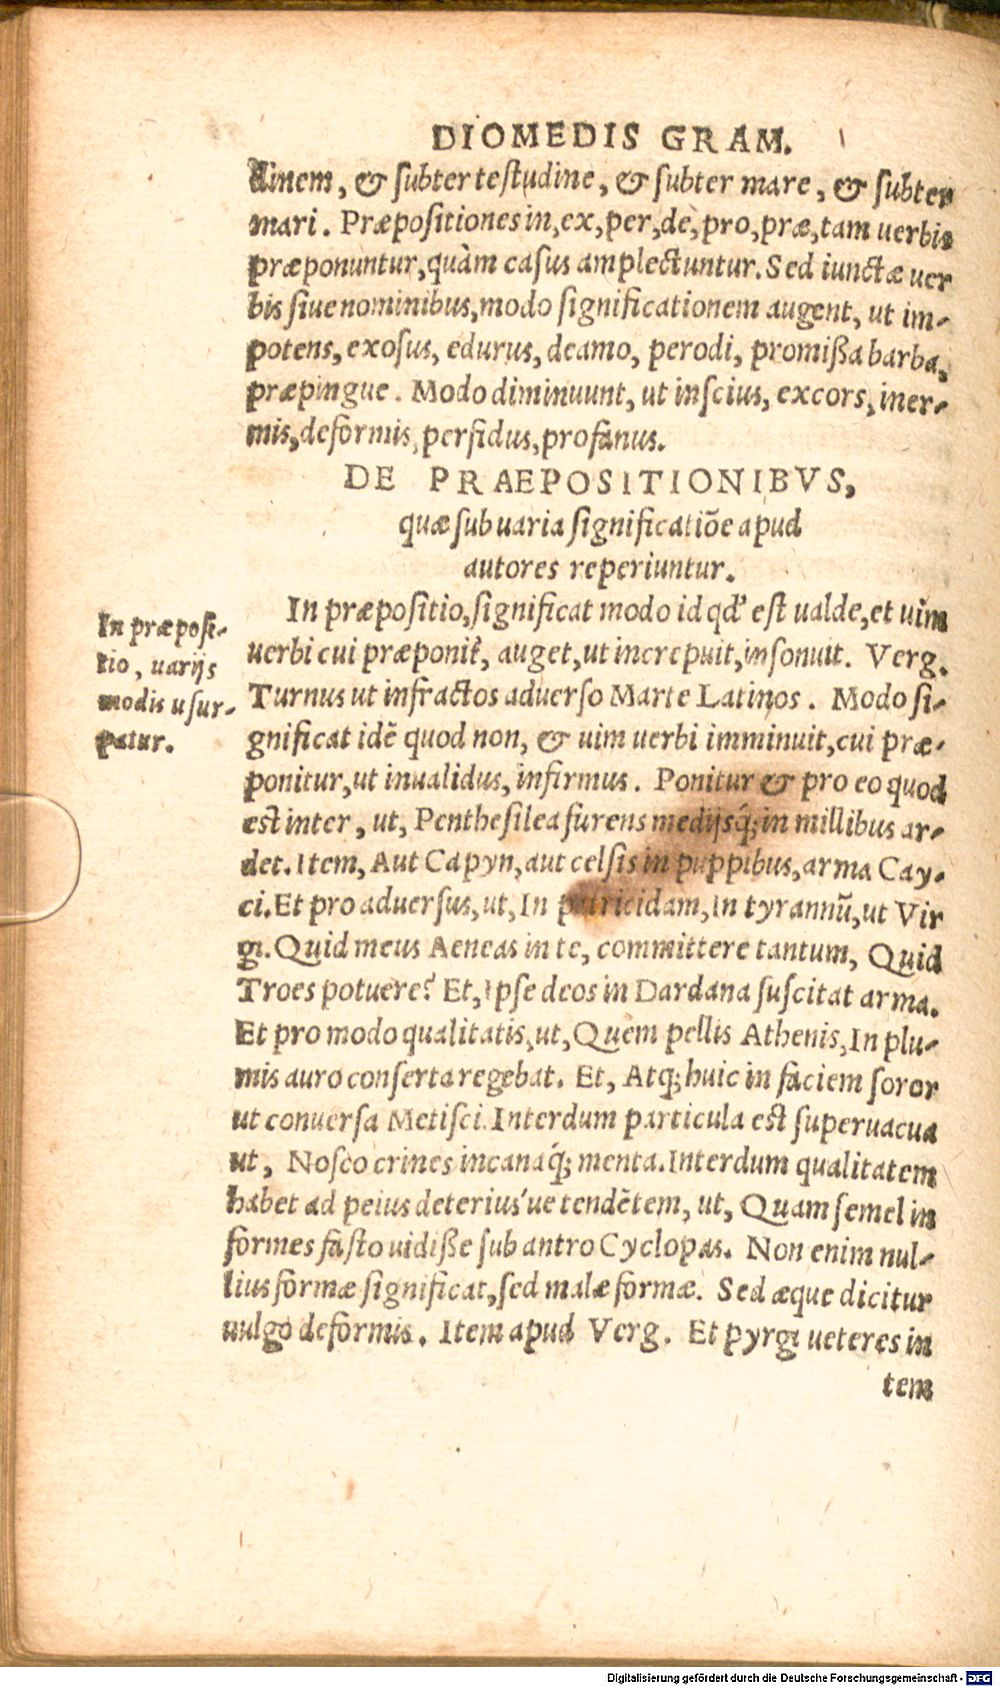 DIOMEDIS GRAM.
dinem, & subter testudine, & subter mare, & subter
mari. Præpositiones in, ex, per, de, pro, præ, tam uerbis
præponuntur, quàm casus amplectuntur. Sed iunctæ uer
bis siue nominibus, modo significationem augent, ut im-
potens, exosus, edurus, deamo, perodi, promißa barba,
præpingue. Modo diminuunt, ut inscius, excors, iner-
mis, deformis, perfidus, profanus.
DE PRAEPOSITIONIBVS,
quæ sub uaria significatiõe apud
autores reperiuntur.
In præpositio, significat modo id qd' est ualde, et uim
uerbi cui præponit̃, auget, ut increpuit, insonuit. Verg.
Turnus ut infractos aduerso Marte Latinos. Modo si-
gnificat idẽ quod non, & uim uerbi imminuit, cui præ-
ponitur, ut inualidus, infirmus. Ponitur & pro eo quod
est inter, ut, Penthesilea furens medijsq́; in millibus ar-
det. Item, Aut Capyn, aut celsis in puppibus, arma Cay-
ci. Et pro aduersus, ut, In patricidam, In tyrannũ, ut Vir
gi. Quid meus Aeneas in te, committere tantum, Quid
Troes potuere? Et, Ipse deos in Dardana suscitat arma.
Et pro modo qualitatis, ut, Quem pellis Athenis, In plu-
mis auro conserta regebat. Et, Atq; huic in faciem soror
ut conuersa Metisci. Interdum particula est superuacua
ut, Nosco crines incanaq́; menta. Interdum qualitatem
habet ad peius deterius'ue tendẽtem, ut, Quam semel in
formes fasto uidiße sub antro Cyclopas. Non enim nul-
lius formæ significat, sed malæ formæ. Sed æque dicitur
uulgo deformis. Item apud Verg. Et pyrgi ueteres in
tem
In præposi-
tio, uarijs
modis usur-
patur.
Digitalisierung gefördert durch die Deutsche Forschungsgemeinschaft - DFG